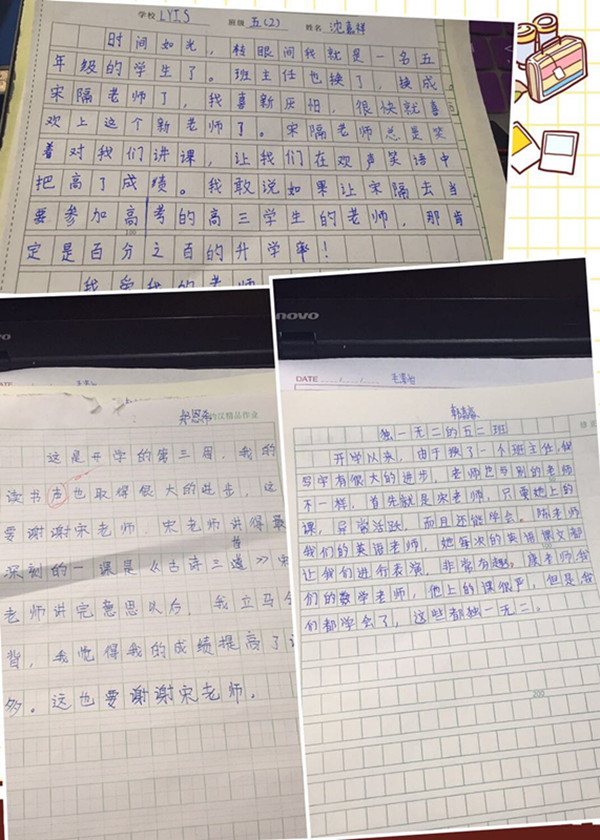 学校 LYIS 班级 五(2) 姓名 沈嘉祥
时间如光，转眼间我就是一名五
年级的学生了。班主任也换了，换成
宋隔老师了，我喜新厌怕，很快就喜
欢上这个新老师了。宋隔老师总是笑
着对我们讲课，让我们在欢声笑语中
把高了成绩。我敢说如果让宋隔去当
要参加高考的高三学生的老师，那肯
定是百分之百的升学率！
我爱我的老师
novo
郑恩希
汉精品作业
这是开学的第三周，我的
读书声也取得很大的进步，这
要谢谢宋老师，宋老师讲得最
深刻的一课是《古诗三首》
老师讲完意思以后，我立马会
背，我觉得我的成绩提高了
多。这也要谢谢宋老师。
novo
DATE
独一无二的五二班
开学以来，由于换了一个班主任，我
写字有很大的进步，老师也与别的老师
不一样，首先就是宋老师，只要她上的
课，异常活跃，而且还能学会。陈老师
我们的英语老师，她每次的英语课文都
让我们进行表演，非常有趣。庞老师我
们的数学老师，他上的课很严，但是我
们都学会了，这些都独一无二。
200